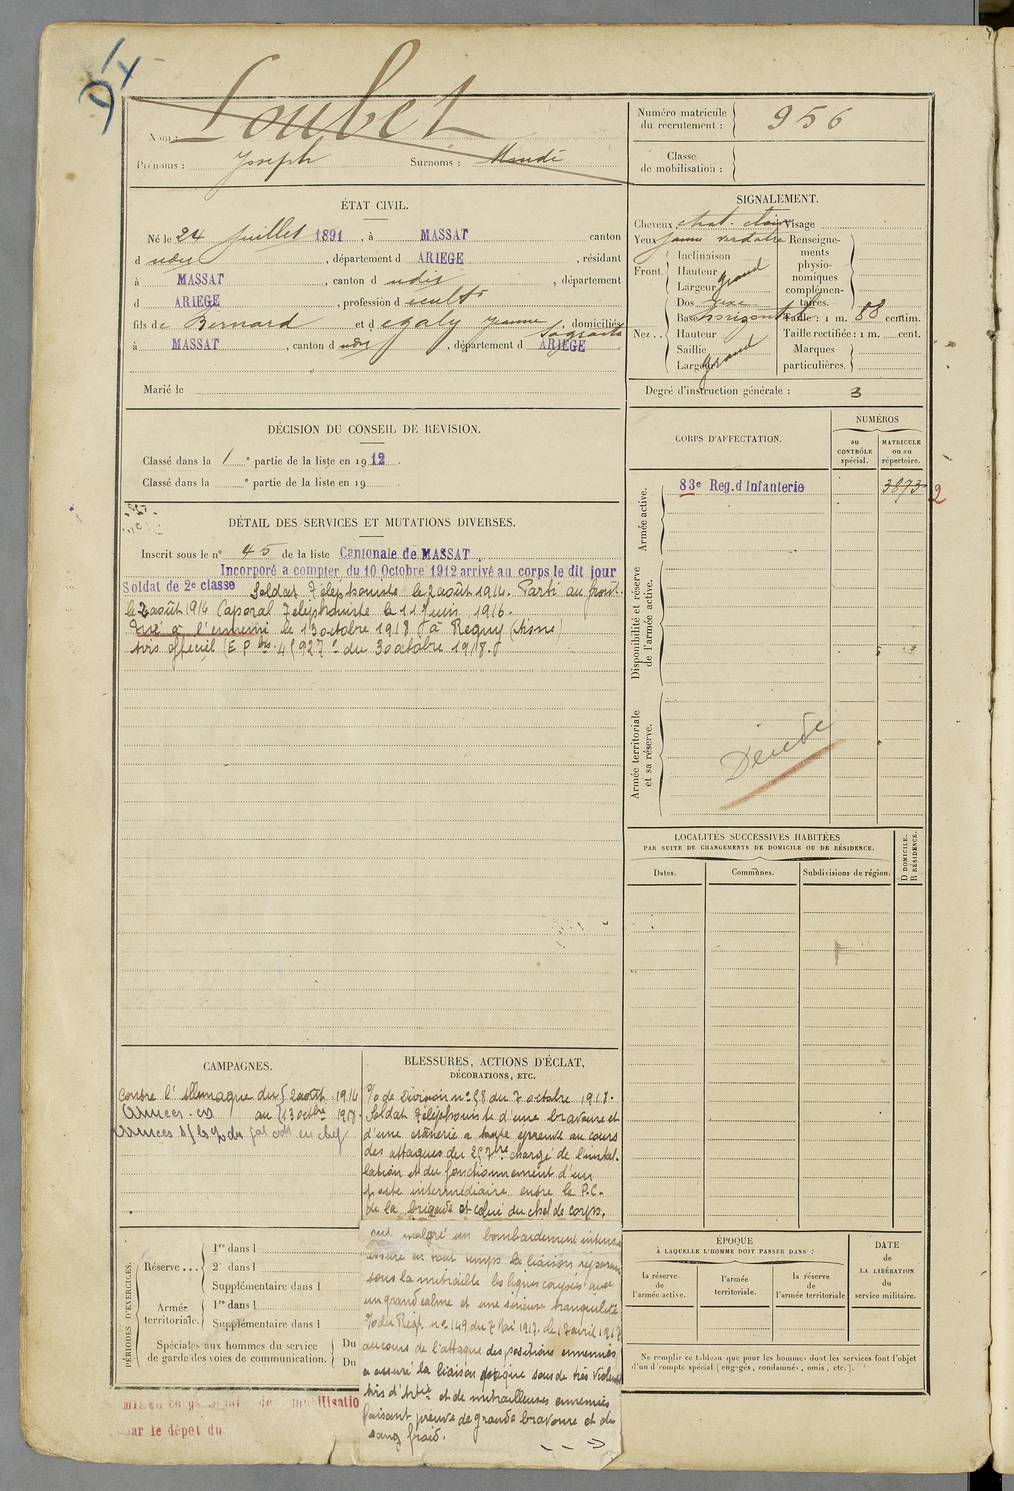 Nom : Loubet
Prénoms : Joseph Surnoms :
Numéro matricule du recrutement : 956
Classe de mobilisation :
ÉTAT CIVIL.
Né le 24 Juillet 1891, à MASSAT canton
d udit, département d ARIEGE, résidant
à MASSAT, canton d udit département
d ARIEGE, profession d cultr
fils de Bernard et d egaly Jeanne, domiciliés
à MASSAT, canton d udit, département d ARIEGE
Marié le
SIGNALEMENT.
Cheveux chat. clairs Visage
Yeux jaune verdatre
Front Inclinaison
Hauteur
Largeur grand
Nez Dos
Base horizontale
Hauteur
Saillie
Largeur grand
Renseignements physionomiques complémentaires.
Taille : 1 m. 88 centim.
Taille rectifiée : 1 m. cent.
Marques particulières.
Degré d'instruction générale : 3
DÉCISION DU CONSEIL DE REVISION.
Classé dans la 1e partie de la liste en 1912.
Classé dans la e partie de la liste en 19
CORPS D'AFFECTATION.
NUMÉROS
au CONTRÔLE spécial.
MATRICULE ou au répertoire.
Armée active.
83e Reg. d Infanterie 3873 2
Disponibilité et réserve de l'armée active.
Armée territoriale et sa réserve.
DÉTAIL DES SERVICES ET MUTATIONS DIVERSES.
Inscrit sous le n° 45 de la liste Cantonale de MASSAT.
Incorporé a compter du 10 Octobre 1912 arrivé au corps le dit jour
Soldat de 2e classe Soldat Téléphoniste le 2 août 1914. Parti au front
le 2 août 1914 Caporal Téléphoniste le 11 Juin 1916.
Tué à l'ennemi le 13 octobre 1918 à Regny (Aisne)
avis officiel du 30 octobre 1918.
LOCALITÉS SUCCESSIVES HABITÉES
PAR SUITE DE CHANGEMENTS DE DOMICILE OU DE RÉSIDENCE.
Dates. Communes. Subdivisions de région.
D DOMICILE. R RÉSIDENCE.
CAMPAGNES.
Contre l'Allemagne du 2 août 1914
au 13 octbre 1918
BLESSURES, ACTIONS D'ÉCLAT,
DÉCORATIONS, ETC.
% de Division n° 58 du 7 octobre 1917.
Soldat Téléphoniste d'une bravoure et
d'une crânerie a toute épreuve au cours
des attaques du chargé de l'instal-
lation et du fonctionnement d'un
poste intermédiaire entre le P.C.
de la brigade et celui du chef de corps.
malgré un bombardement intense
assuré en tout temps la liaison réparant
sous la mitraille les lignes coupées avec
un grand calme et une sérieuse tranquilité
% du Regt. n° 149 du 7 Mai 1917. le 17 avril 1917
au cours de l'attaque des positions ennemies
a assuré la liaison optique sous de très violents
tirs d'Artie et de mitrailleuses ennemies
faisant preuve de grande bravoure et de
sang froid.
PÉRIODES D'EXERCICES.
Réserve... 1re dans l
2e dans l
Supplémentaire dans l
Armée territoriale. 1re dans l
Supplémentaire dans l
Spéciales aux hommes du service de garde des voies de communication. Du
Du
ÉPOQUE
À LAQUELLE L'HOMME DOIT PASSER DANS :
la réserve de l'armée active.
l'armée territoriale.
la réserve de l'armée territoriale
DATE de LA LIBÉRATION du service militaire.
Ne remplir ce tableau que pour les hommes dont les services font l'objet
d'un décompte spécial (engagés, condamnés, omis, etc.).
par le dépot du